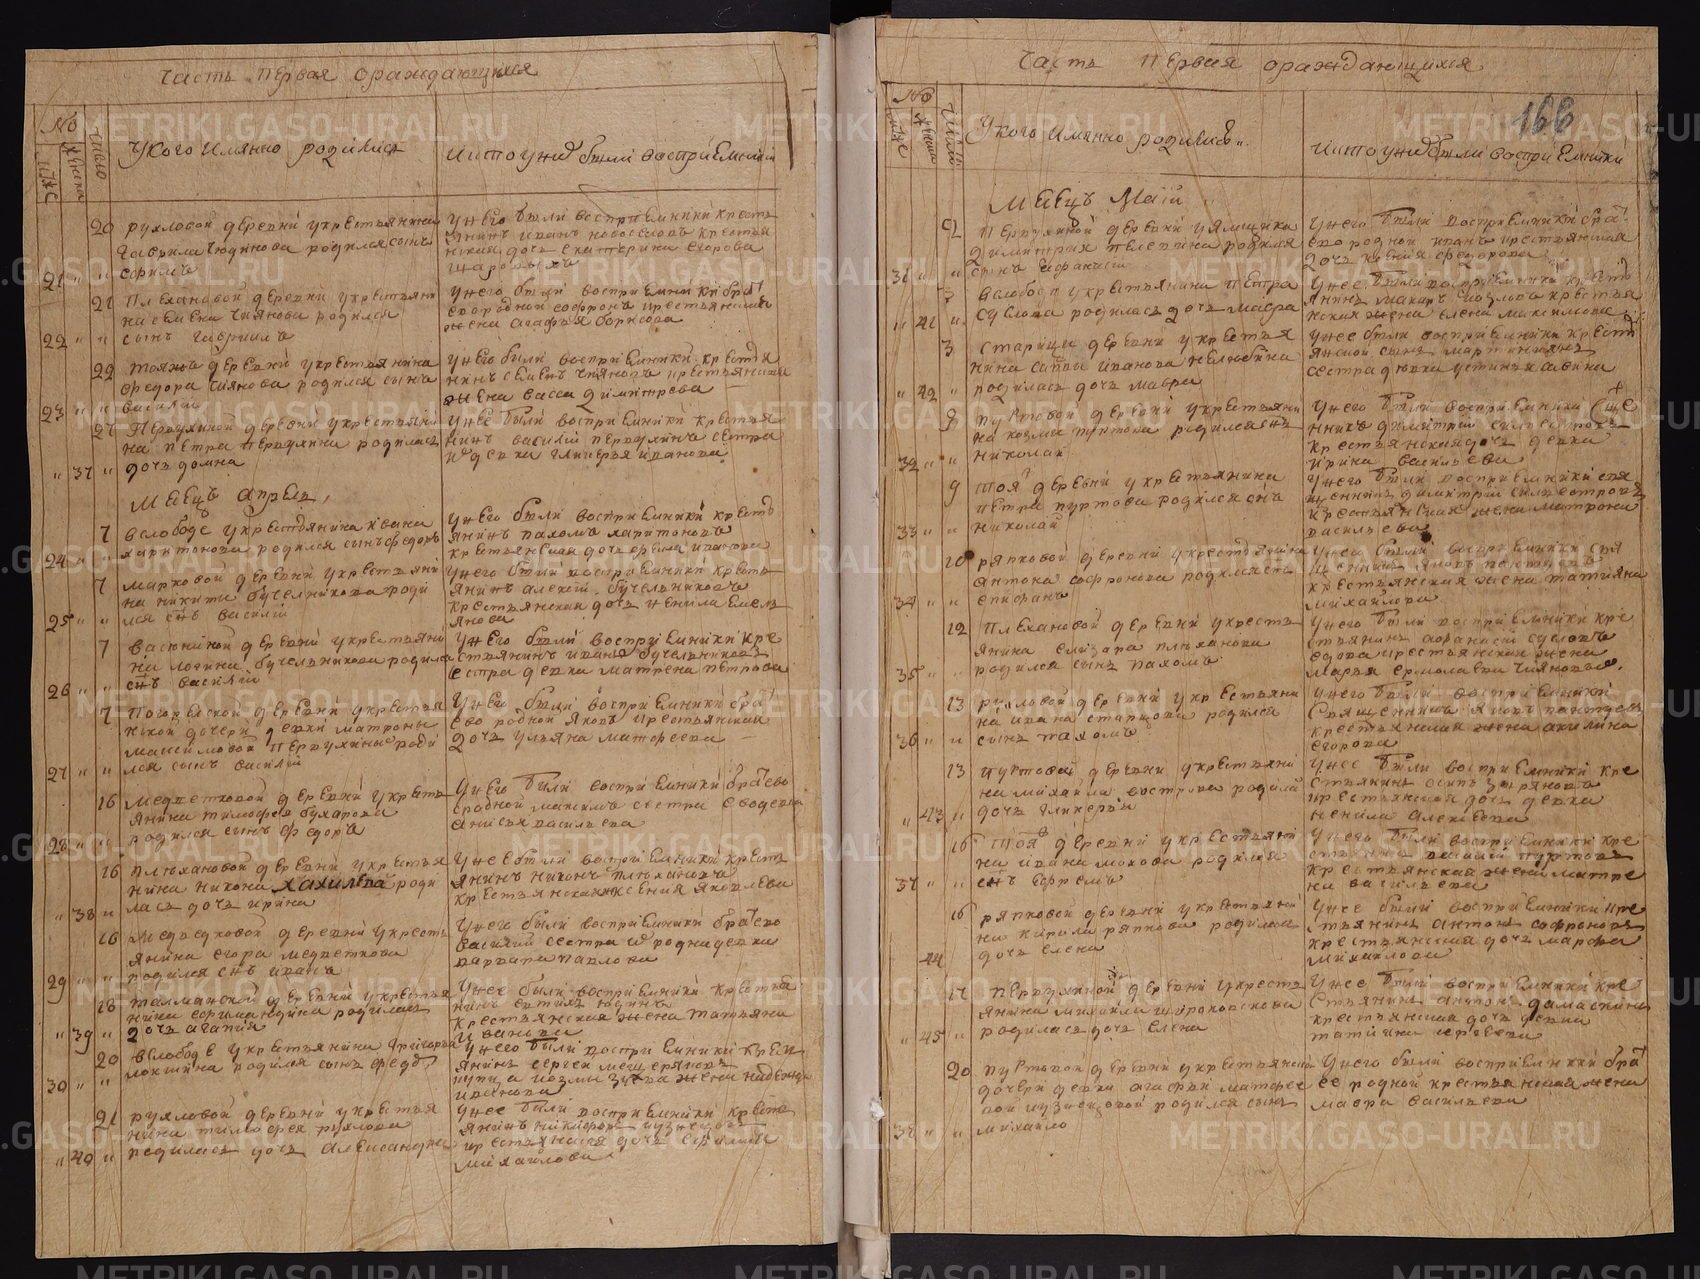 Часть первая ораждающихся
№
муж
женска
число
Укого имянно родились
икто унихъ были восприемники
20 рухловой деревни укрестьянина
Гаврила Чюдинова родился сынъ
21 " " Ефимъ
унего были восприемники кресть
янинъ иванъ новоселовъ крестья
нская дочь екатерина егорова
21 Плехановой деревни укрестьяни
на семена Чиянова родился
22 " " сынъ гавриилъ
унего были восприемники братъ
его родной софронъ икрестьянская
жена агафья борисова
22 тояжъ деревни укрестьянина
федора Чиянова родился сынъ
23 " " василий
унего были восприемники крестья
нинъ семенъ Чияновъ икрестьянская
жена васса димитрева
27 Первухиной деревни укрестьяни
на петра первухина родилась
" 37 " дочь домна
унее были восприемники крестья
нинъ василий первухинъ сестра
ией девка гликерья иванова
Месецъ апрель
7 вслободе укрестьянина ивана
24 " харитонова родился сынъ федоръ
унего были восприемники кресть
янинъ пахомъ харитоновъ
крестьянская дочь ирина иванова
7 марковой деревни укрестьяни
на никиты бучельникова роди
25 " " лся снъ василий
унего были восприемники кресть
янинъ алексей бучельниковъ
крестьянская дочь ненила емель
янова
7 васюкиной деревни укрестьяни
на логина бучельникова родился
26 " " снъ василий
унего были восприемники кре
стьянинъ иванъ бучельниковъ
сестра девка матрена петрова
7 Погорельской деревни укрестья
нской дочери девки матроны
максимовой первухиной роди
27 " " лся сынъ василий
унего были восприемники бра
его родной яковъ икрестьянская
дочь ульяна матфеева
16 медветковой деревни укресть
янина тимофея бухарова
28 " " родился сынъ федоръ
унего были восприемники братъ его
сродной максимъ сестра его девка
анисья васильева
16 плюхановой деревни укрестья
нина никона хахилева роди
" 38 " лась дочь ирина
унее были восприемники кресть
янинъ никонъ плюхановъ
крестьянская ксения яковлева
16 медведковой деревни укресть
янина егора медветкова
29 " " родился снъ иванъ
унего были восприемники братъ его
василий сестра его родная девка
варвара павлова
18 талманской деревни укрестья
нина родилась
" 39 " дочь агапия
унее были восприемники крестья
нинъ
крестьянская жена татьяна
иванова
20 вслободе укрестьянина григорья
локшина родился сынъ федоръ
30 " "
унего были восприемники крест
янинъ сергей мещеряковъ
купца козмы зуева жена надежда
иванова
21 рухловой деревни укрестья
нина тимофея рухлова
" 40 " родилась дочь александра
унее были восприемники кресть
янинъ никифоръ кузнецовъ
крестьянская дочь
михайлова
Часть первая ораждающихся
166
№
муж
женска
число
Укого имянно родились
икто унихъ были восприемники
Месецъ Маий
2 Первухиной деревни уямщика
димитрия телегина родился
31 " " сынъ афанасий
унего были восприемники братъ
его родной иванъ икрестьянская
дочь ксения федорова
3 вслободе укрестьянина петра
" 41 " суслова родилась дочь мавра
унее были восприемники кресть
янинъ макаръ козловъ крестья
нская жена елена максимова
3 старицы деревни укрестья
нина саввы иванова нелюбина
" 42 " родилась дочь мавра
унее были восприемники крест
янской сынъ мартиниянъ
сестра девка устинья савина
9 пуртовой деревни укрестьяни
на козмы пуртова родился снъ
32 " " николай
унего были восприемники свще
нникъ димитрий силвестровъ
крестьянская дочь девка
ирина васильева
9 тоя деревни укрестьянина
петра пуртова родился снъ
33 " " николай
унего были восприемники свя
щенникъ димитрий силвестровъ
крестьянская жена матрона
васильева
10 ряпковой деревни укрестьянина
антона софронова родился снъ
34 " " епифанъ
унего были восприемники свя
щенникъ яковъ пантуевъ
крестьянская жена татияна
михайлова
12 Плехановой деревни укресть
янина елизара плеханова
35 " " родился сынъ пахомъ
унего были восприемники кре
стьянинъ афанасий сусловъ
вдова крестьянская жена
марья ермолаева чиянова
13 рухловой деревни укрестьяни
на ивана старцова родился
36 " " сынъ пахомъ
унего были восприемники
священникъ яковъ пантуевъ
крестьянская жена акилина
егорова
13 пуртовой деревни укрестьяни
на михайла вострова родила
" 43 " дочь гликерья
унее были восприемники кре
стьянинъ осипъ зыряновъ
крестьянская дочь девка
ненила алексеева
15 тоя деревни укрестьяни
на ивана мохова родился
37 " " снъ ефремъ
унего были восприемники кре
стьянинъ василий пуртовъ
крестьянская жена матре
на васильева
15 ряпковой деревни укрестьяни
на кирила ряпкова родилась
44 дочь елена
унее были восприемники кре
стьянинъ антонъ софроновъ
крестьянская дочь марфа
михайлова
17 первухиной деревни укресть
янина михайла широковскова
" 45 " родилась дочь елена
унее были восприемники кре
стьянинъ антонъ дамаскинъ
крестьянская дочь девка
татияна сергеева
20 пуртовой деревни укрестьянской
дочери девки агафьи матфее
вой кузнецовой родился сынъ
38 " " михайло
унего были восприемники бра
ее родной крестьянская жена
мавра васильева